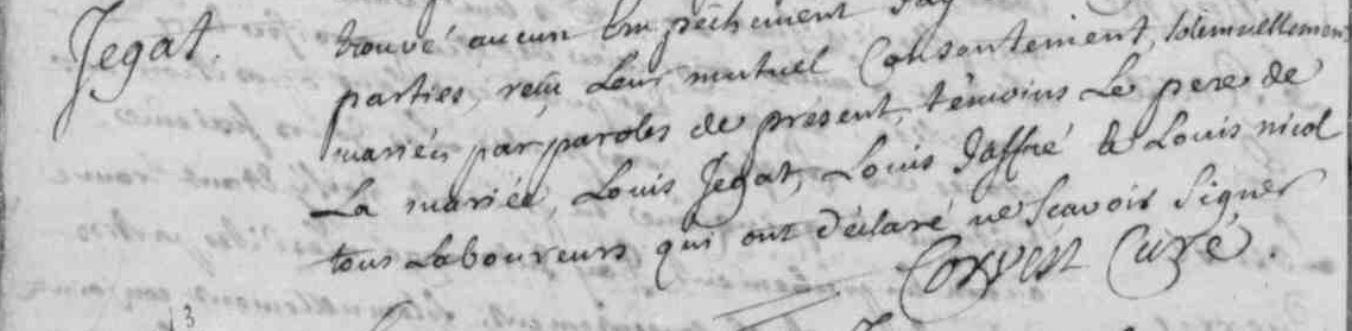 Jegat.
trouvé aucun empêchement
parties, reçu Leur mutuel Consentement, solemnellement
mariés par paroles de présent, témoins Le pere de
La mariée, Louis Jegat, Louis Jaffré & Louis nicol
tous Laboureurs qui ont déclaré ne sçavoir Signer
Corvest Curé.
3